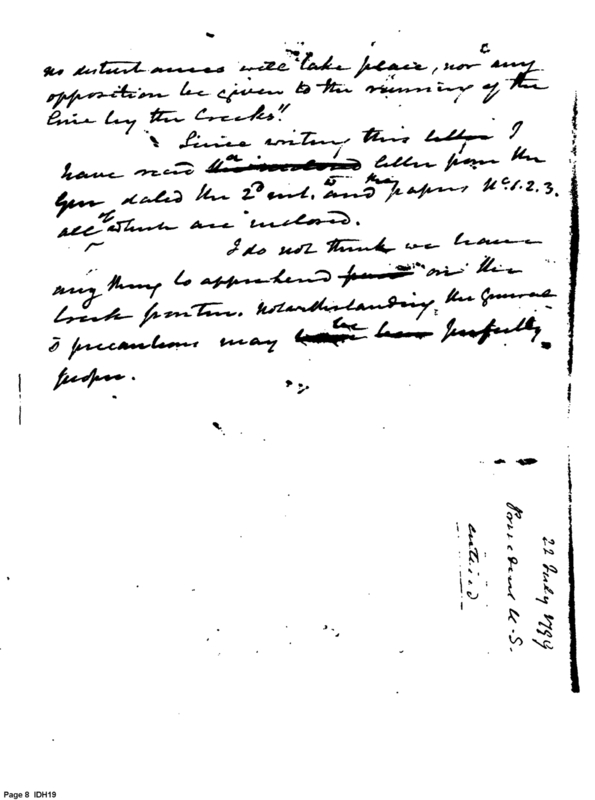 no disturbances will take place, nor any
opposition be given to the running of the
line by the Creeks".
Since writing this letter I
have recd letter from the
Genl dated the 2d inst. and the papers No. 1. 2. 3.
all of which are inclosed.
I do not think we have
any thing to apprehend on the
Creek frontier. Notwithstanding, the General
s precautions may be perfectly
proper.
22 July 1799
President U.S.
entered
Page 8 IDH19